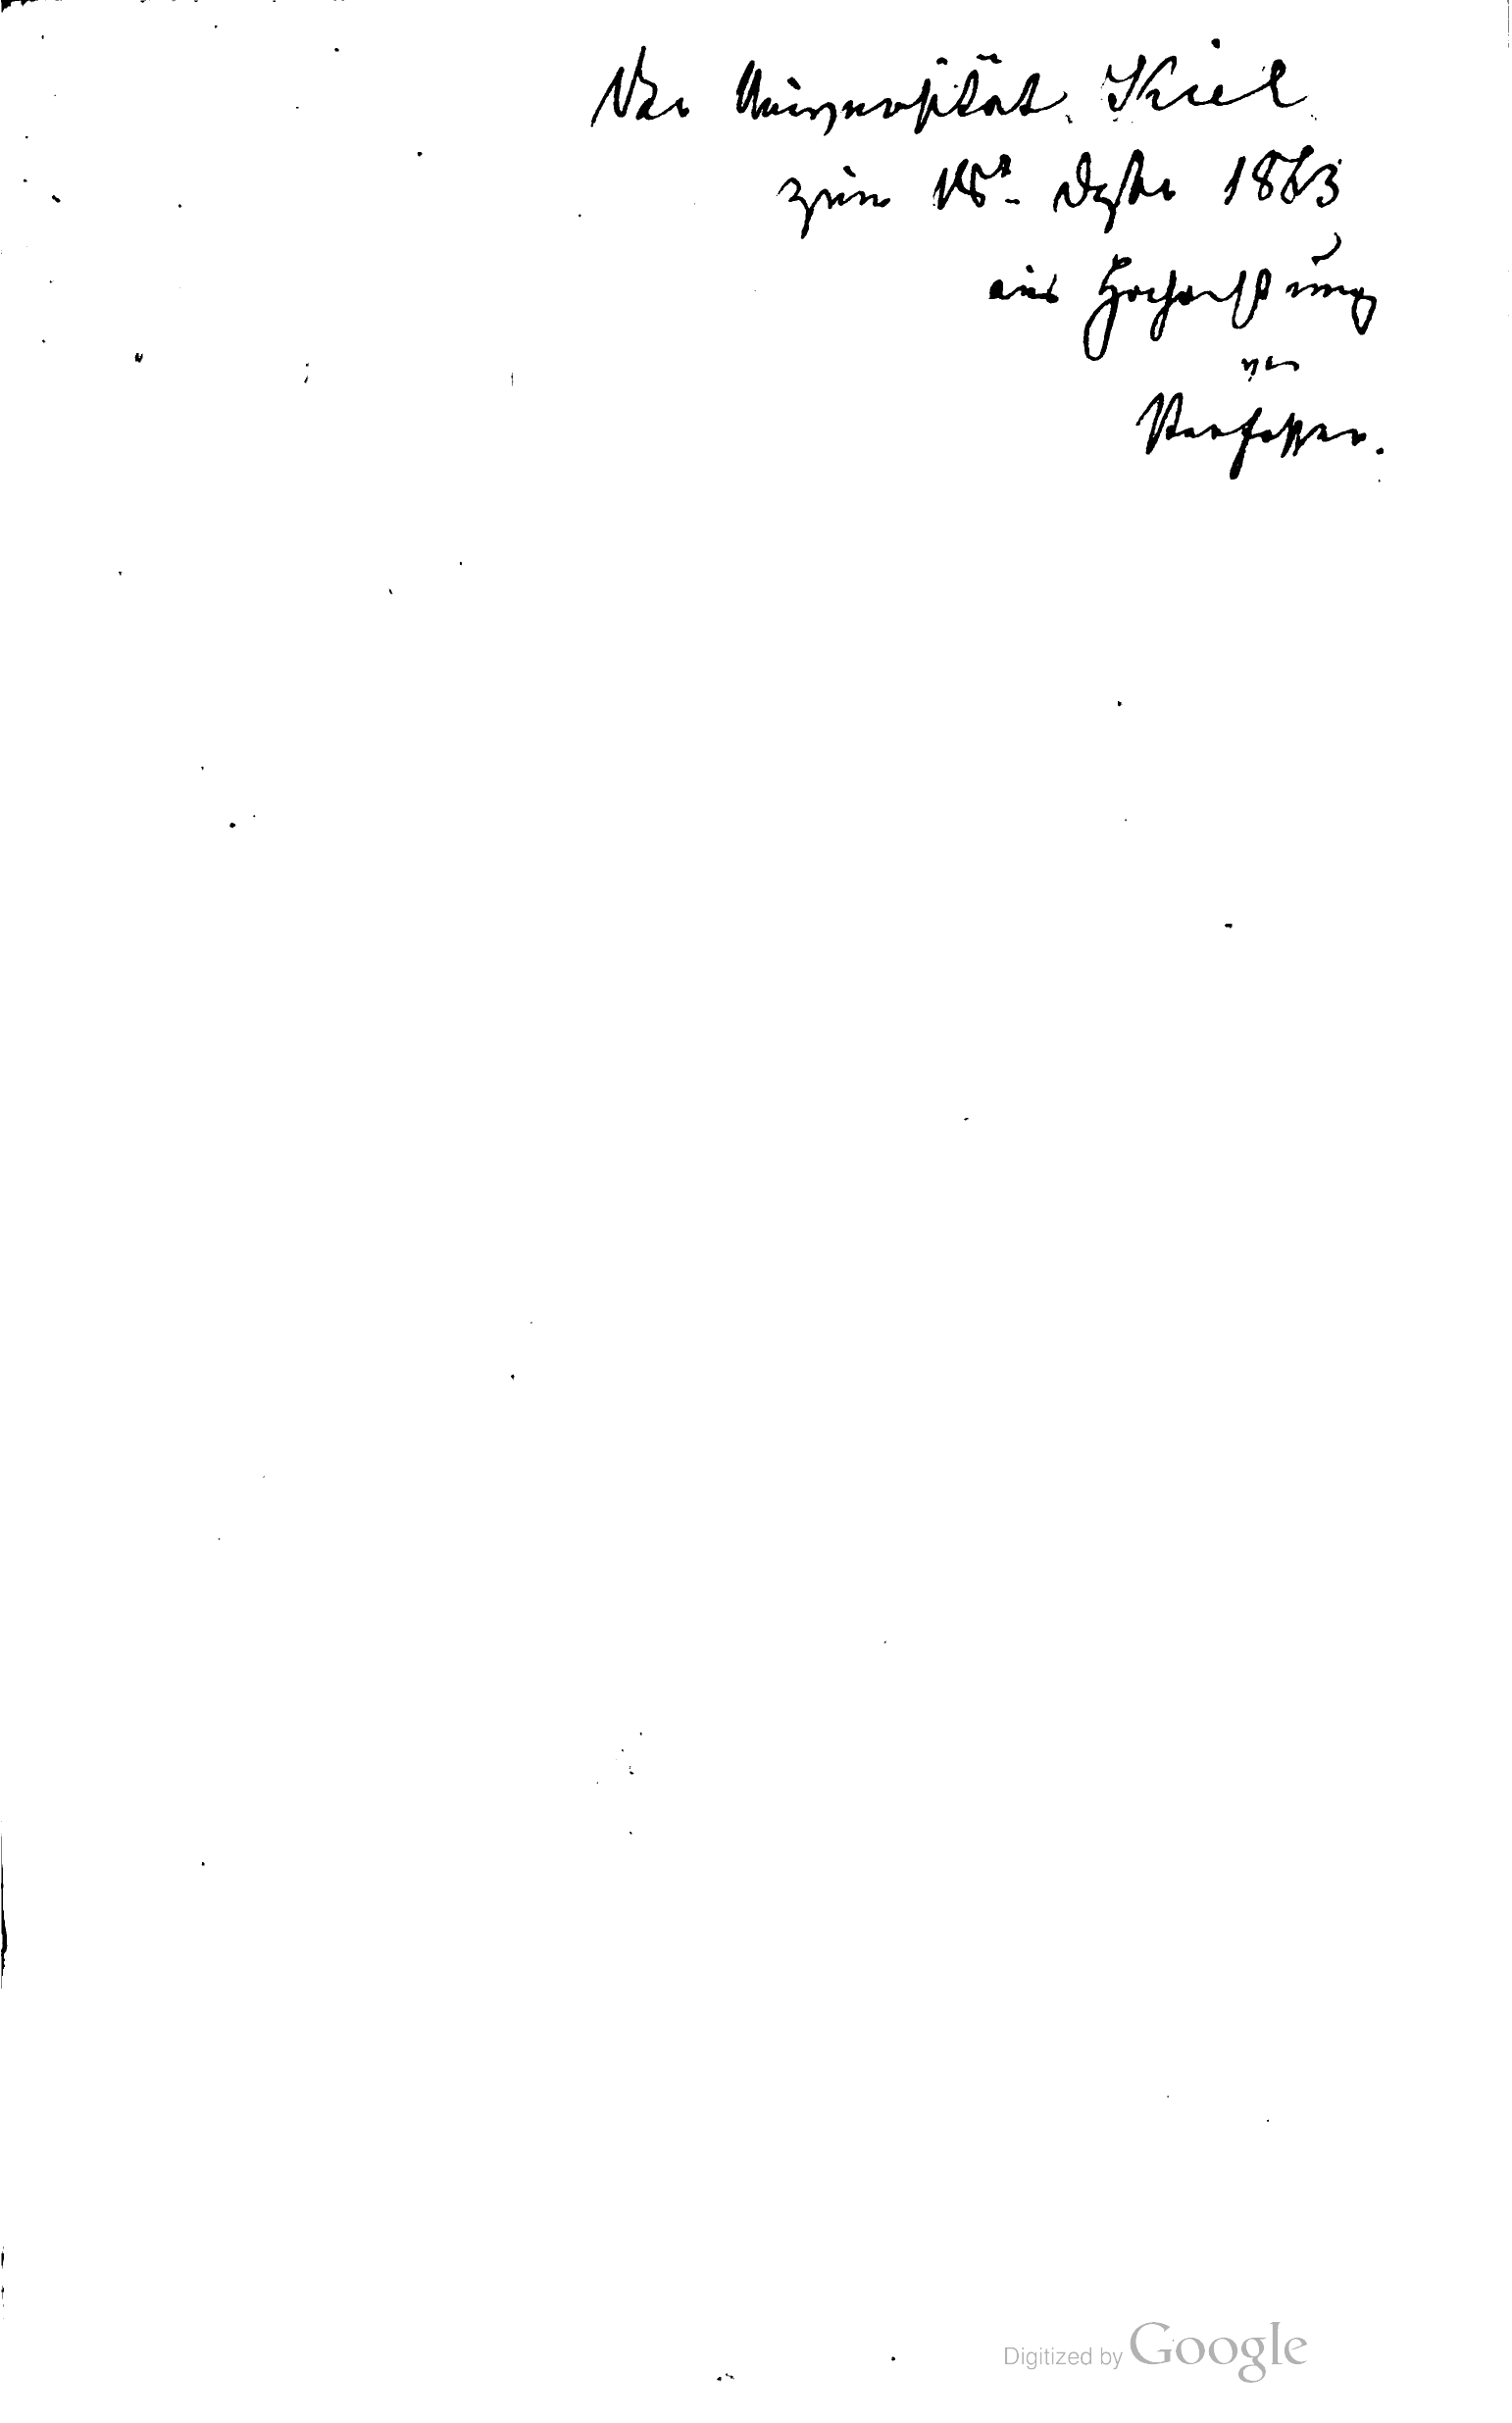 Der Universität Kiel
zum 18t. 1863
aus Hochachtung
v.
Verfasser.
Digitized by Google